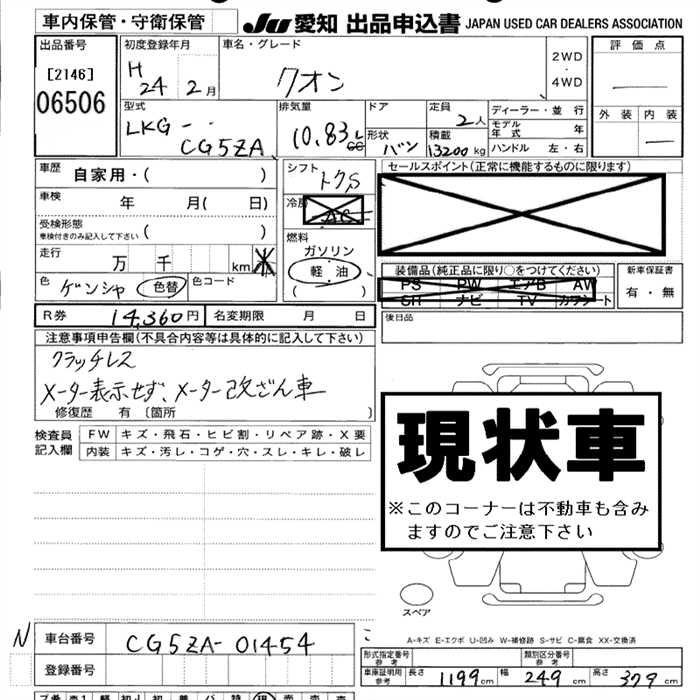 車内保管・守衛保管
JU 愛知 出品申込書 JAPAN USED CAR DEALERS ASSOCIATION
出品番号
[2146]
06506
初度登録年月
H 24 2月
車名・グレード
クオン
2WD
・
4WD
評価点
外装 内装
型式
LKG-
CG5ZA
排気量
10.83L
cc
ドア
形状 バン
定員
2人
積載
13200kg
ディーラー・並行
モデル年式 年
ハンドル 左・右
車歴 自家用・( )
車検 年 月( 日)
受検形態
車検付きのみ記入して下さい ( )
走行 万 千 km
色 ゲンシャ 色替 色コード
シフト
冷房
AC
燃料
ガソリン
軽・油
( )
セールスポイント(正常に機能するものに限ります)
装備品(純正品に限り○をつけてください)
PS PW エアB AW
SR ナビ TV カワシート
新車保証書
有・無
R券 14,360円 名変期限 月 日
後日品
注意事項申告欄(不具合内容等は具体的に記入して下さい)
クラッチレス
メーター表示せず、メーター改ざん車
修復歴 有 〔箇所 〕
検査員
記入欄
FW キズ・飛石・ヒビ割・リペア跡・X要
内装 キズ・汚レ・コゲ・穴・スレ・キレ・破レ
現状車
※このコーナーは不動車も含み
ますのでご注意下さい
スペア
A-キズ E-エクボ U-凹み W-補修跡 S-サビ C-腐食 XX-交換済
N
車台番号 CG5ZA-01454
登録番号
型式指定番号
参考
類別区分番号
参考
車庫証明用
参考
長さ 1199cm 幅 249cm 高さ 379cm